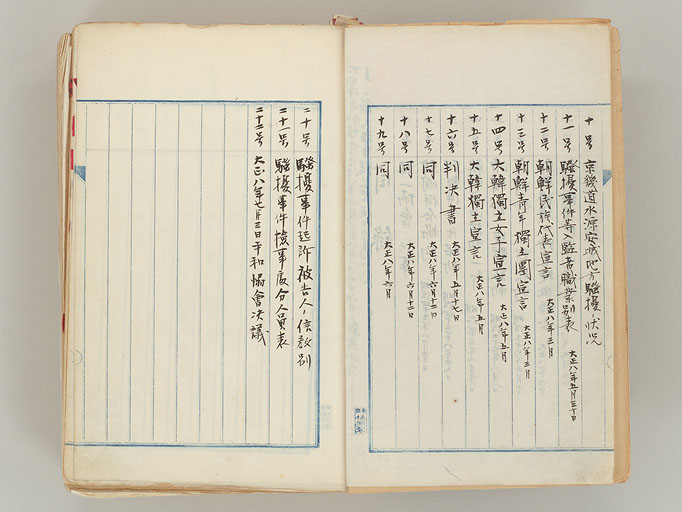 十号 京畿道水原安城地方騒擾ノ状况
十一号 騒擾事件等入監者職業別表 大正八年五月三十日
十二号 朝鮮民族代表宣言 大正八年三月
十三号 朝鮮青年獨立團宣言 大正八年三月
十四号 大韓獨立女子宣言 大正八年五月
十五号 大韓獨立宣言 大正八年五月
十六号 判决書 大正八年五月十七日
十七号 同 大正八年六月十二日
十八号 同 大正八年六月十二日
十九号 同 大正八年六月
二十号 騒擾事件起訴被告人ノ信教別
二十一号 騒擾事件検事處分人員表
二十二号 大正八年七月三日平和協會决議